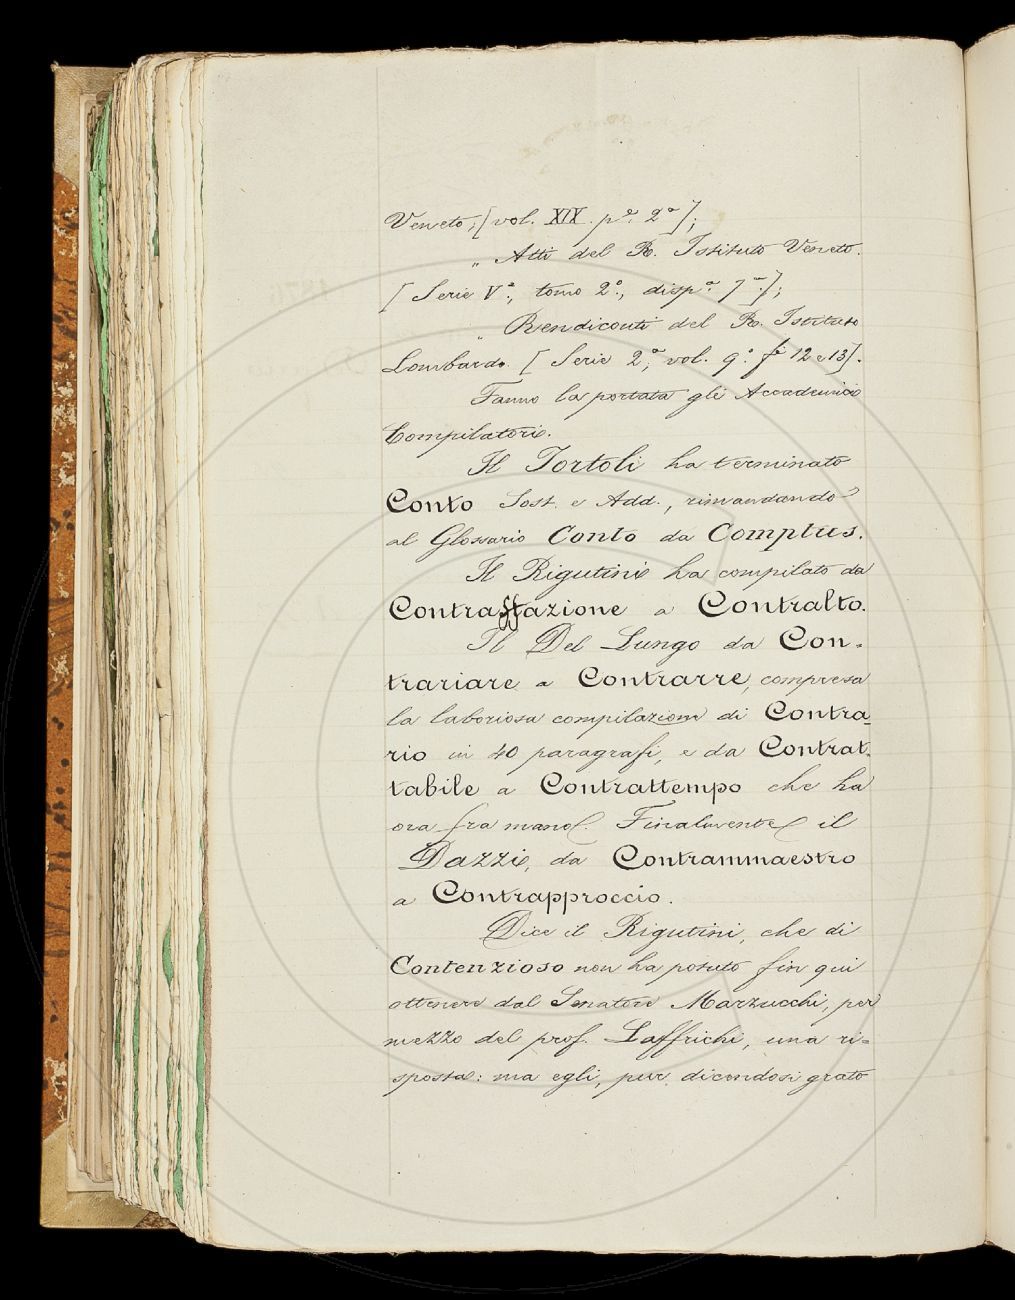 Veneto; [vol. XIX. p.ª 2ª];
„ Atti del R. Istituto Veneto.
[Serie Vª, tomo 2º, disp.ª 7ª];
„ Rendiconti del R. Istituto
Lombardo. [Serie 2ª, vol. 9º fi 12 e 13].
Fanno la portata gli Accademici
Compilatori.
Il Tortoli ha terminato
Conto Sost. e Add., rimandando
al Glossario Conto da Comptus.
Il Rigutini ha compilato da
Contraffazione a Contralto.
Il Del Lungo da Con-
trariare a Contrarre, compresa
la laboriosa compilazione di Contra-
rio in 40 paragrafi, e da Contrat-
tabile a Contrattempo che ha
ora fra mano. Finalmente il
Dazzi, da Contrammaestro
a Contrapproccio.
Dice il Rigutini, che di
Contenzioso non ha potuto fin qui
ottenere dal Senatore Marzucchi, per
mezzo del prof. Laffrichi, una ri-
sposta: ma egli, pur dicendosi grato